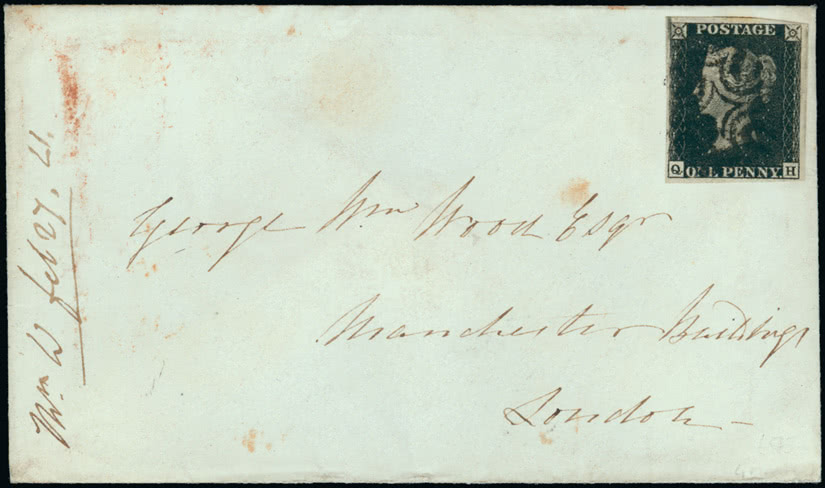 POSTAGE
Q ONE PENNY H
George Wm Wood Esqr
Manchester Buildings
London
Wm W feb 27, 41.